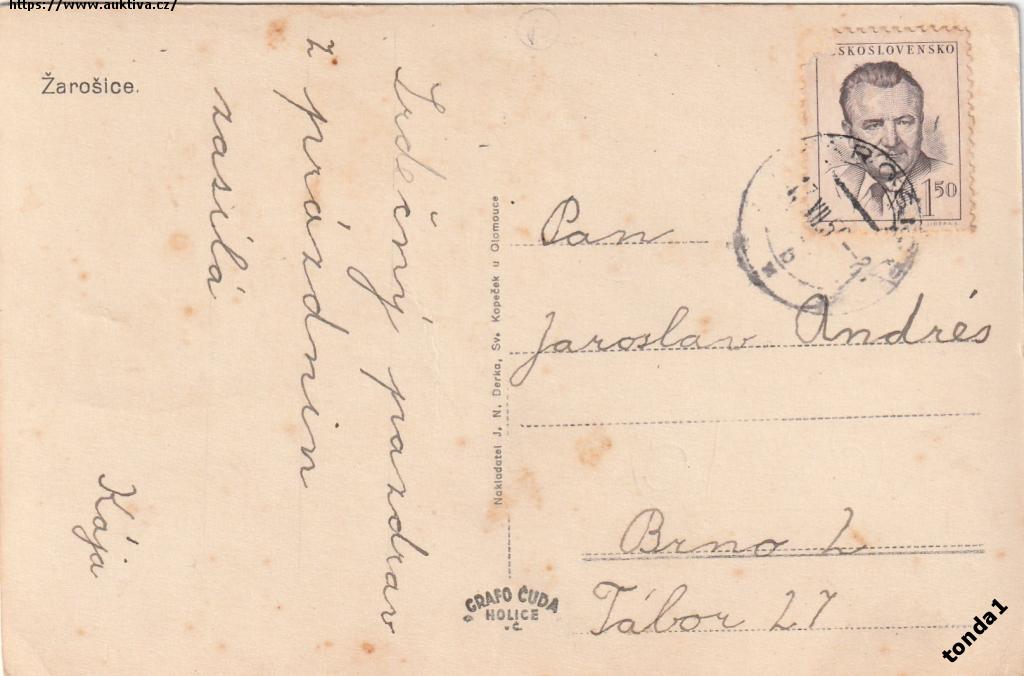 https://www.auktiva.cz/
Žarošice.
Srdečný pozdrav
z prázdnin
zasílá
Kája
Nakladatel J. N. Derka, Sv. Kopeček u Olomouce
GRAFO ČUDA
HOLICE
SKOSLOVENSKO
1 50
Pan
Jaroslav Andrés
Brno 2
Tábor 27
tonda1